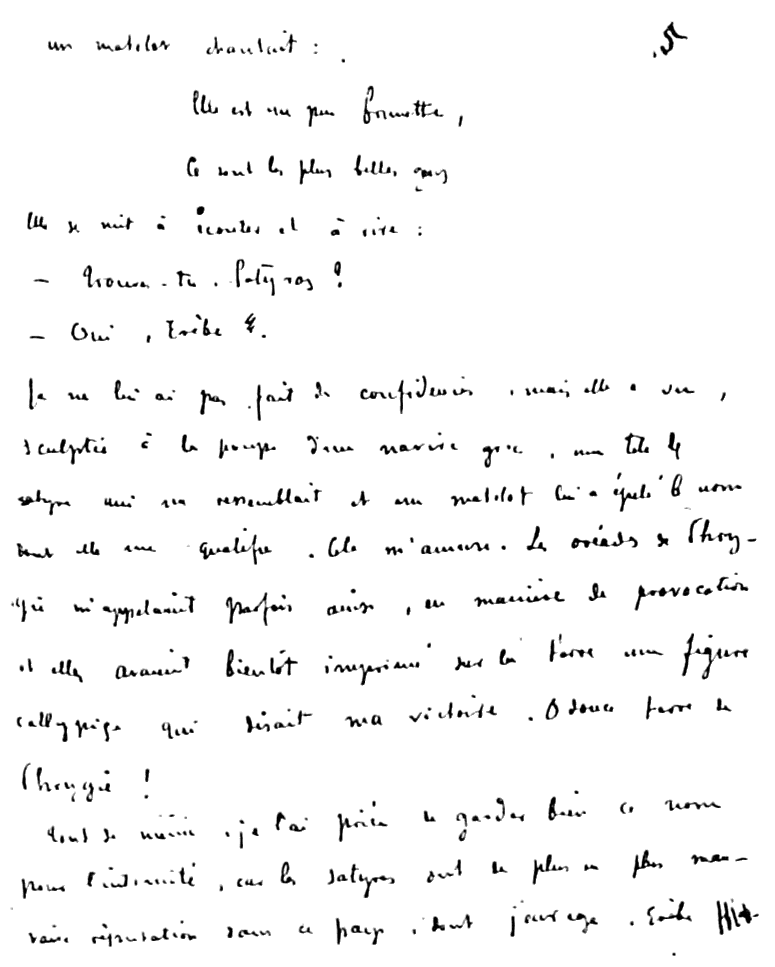 5.
un matelot chantait :
Elle est un peu
Ce sont les plus belles
Elle se mit à écouter et à rire :
— Trouves-tu, Satyros ?
— Oui, Erèbe.
Je ne lui ai pas fait de confidences, mais elle a vu,
sculptée à la poupe d'un navire grec, une tête de
satyre qui me ressemblait et un matelot lui a épelé le nom
dont elle me qualifie. Cela m'amuse. Les oréades de Phry-
gie m'appelaient parfois ainsi, en manière de provocation
et elles avaient bientôt imprimé sur la terre une figure
callypige qui disait ma victoire. O douce terre de
Phrygie !
Tout de même, je l'ai priée de garder bien ce nom
pour l'intimité, car les satyres ont de plus en plus mau-
vaise réputation dans ce pays, dont j'enrage. Erèbe